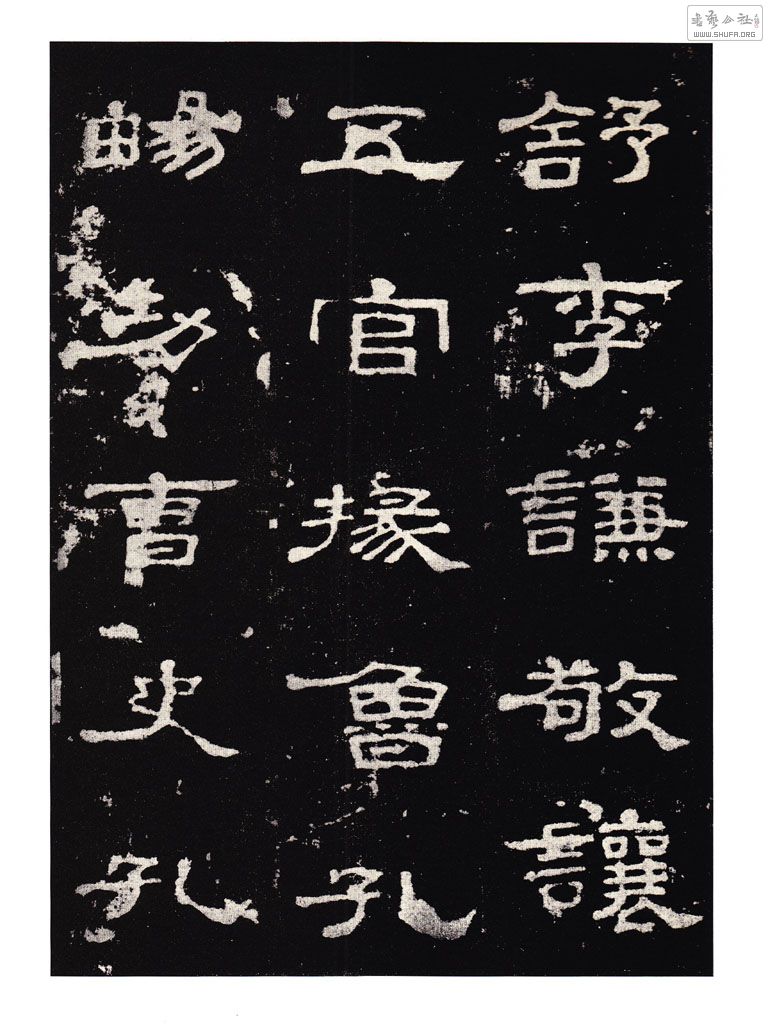 舒李謙敬讓
五官掾魯孔
畼功曹史孔
書藝公社
WWW.SHUFA.ORG